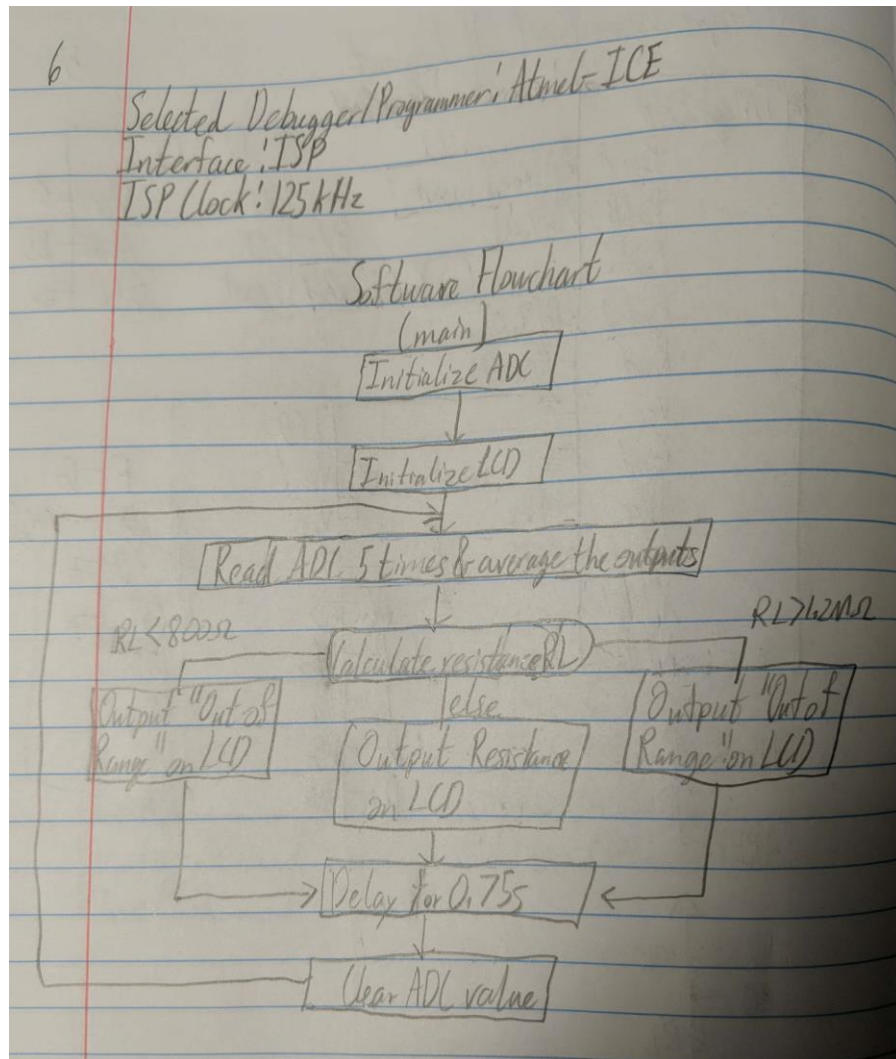 6
Selected Debugger/Programmer: Atmel-ICE
Interface: ISP
ISP Clock: 125kHz
Software Flowchart
(main)
Initialize ADC
Initialize LCD
Read ADC 5 times & average the outputs
RL<800Ω
Calculate resistance RL
RL>1.2MΩ
Output "Out of
Range" on LCD
else
Output Resistance
on LCD
Output "Out of
Range" on LCD
Delay for 0.75s
Clear ADC value